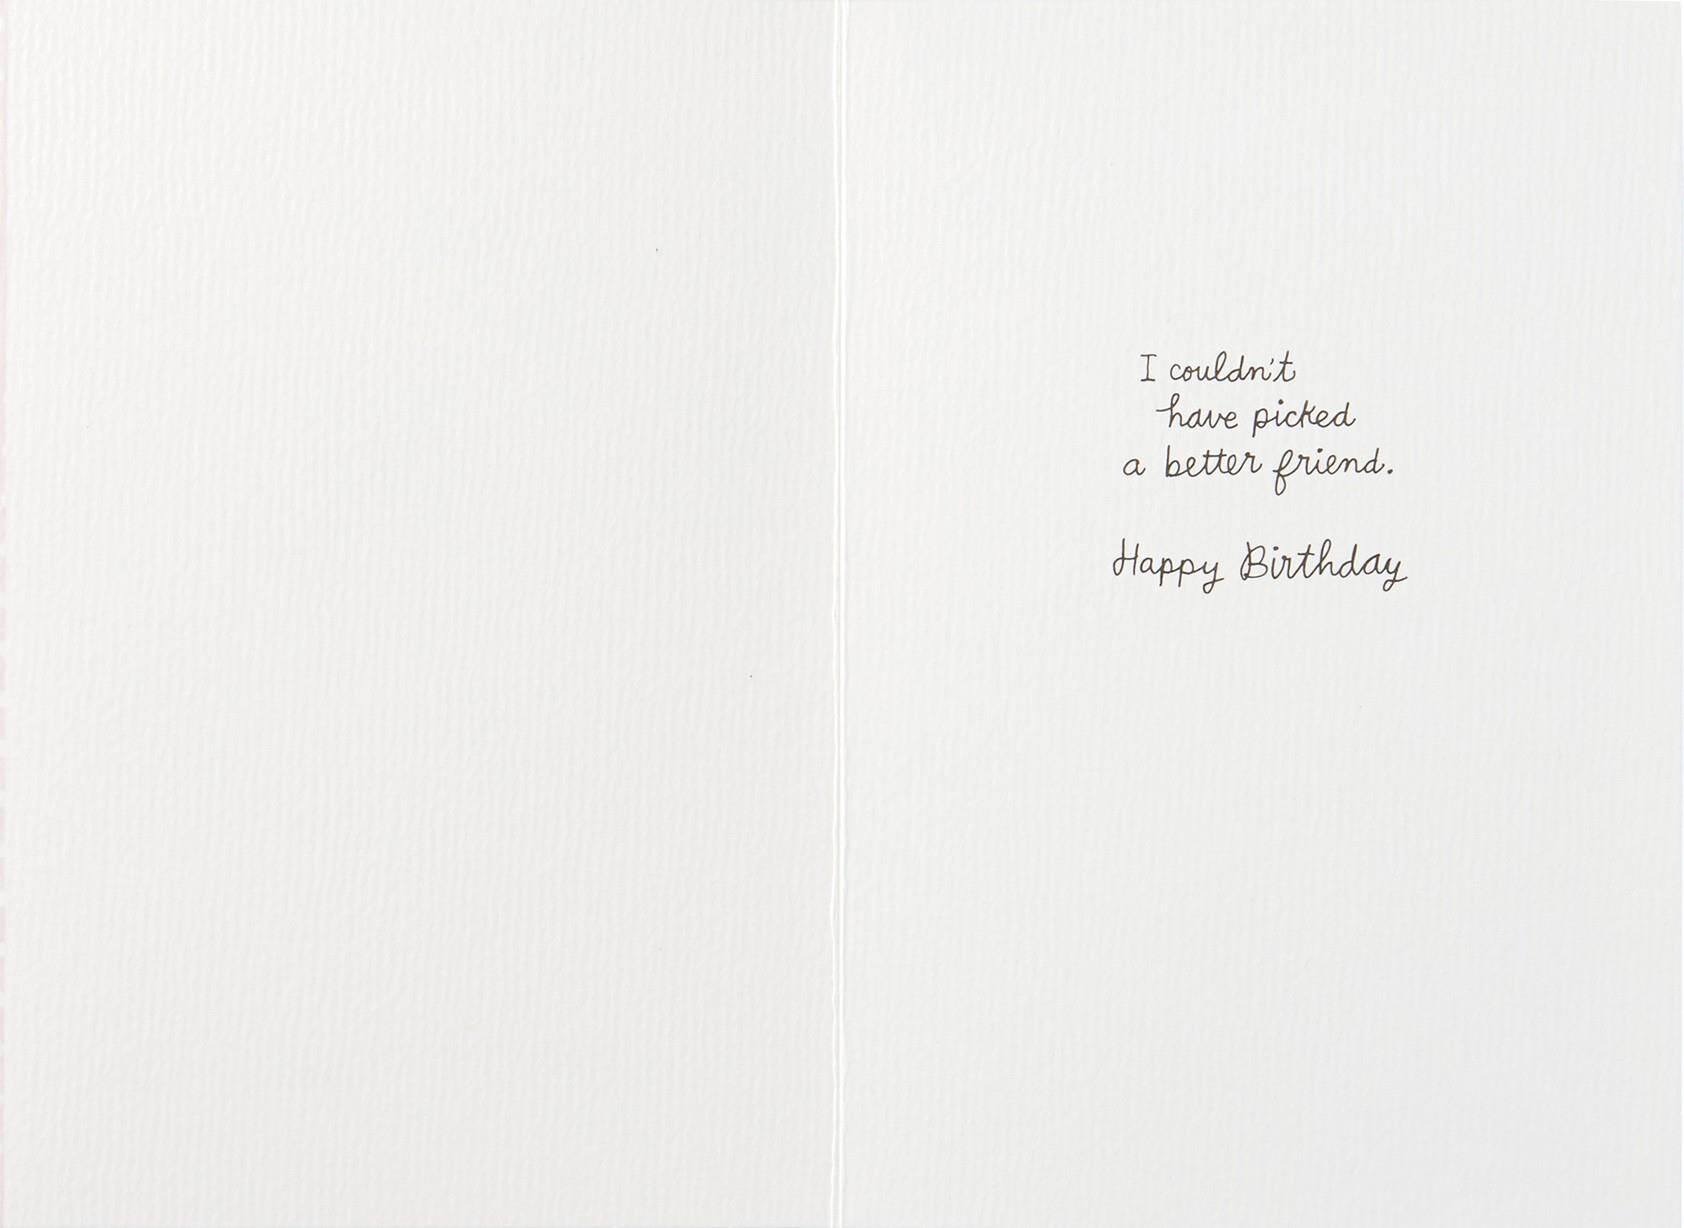 I couldn't
have picked
a better friend.
Happy Birthday